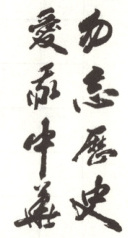 勿忘歷史
愛我中華